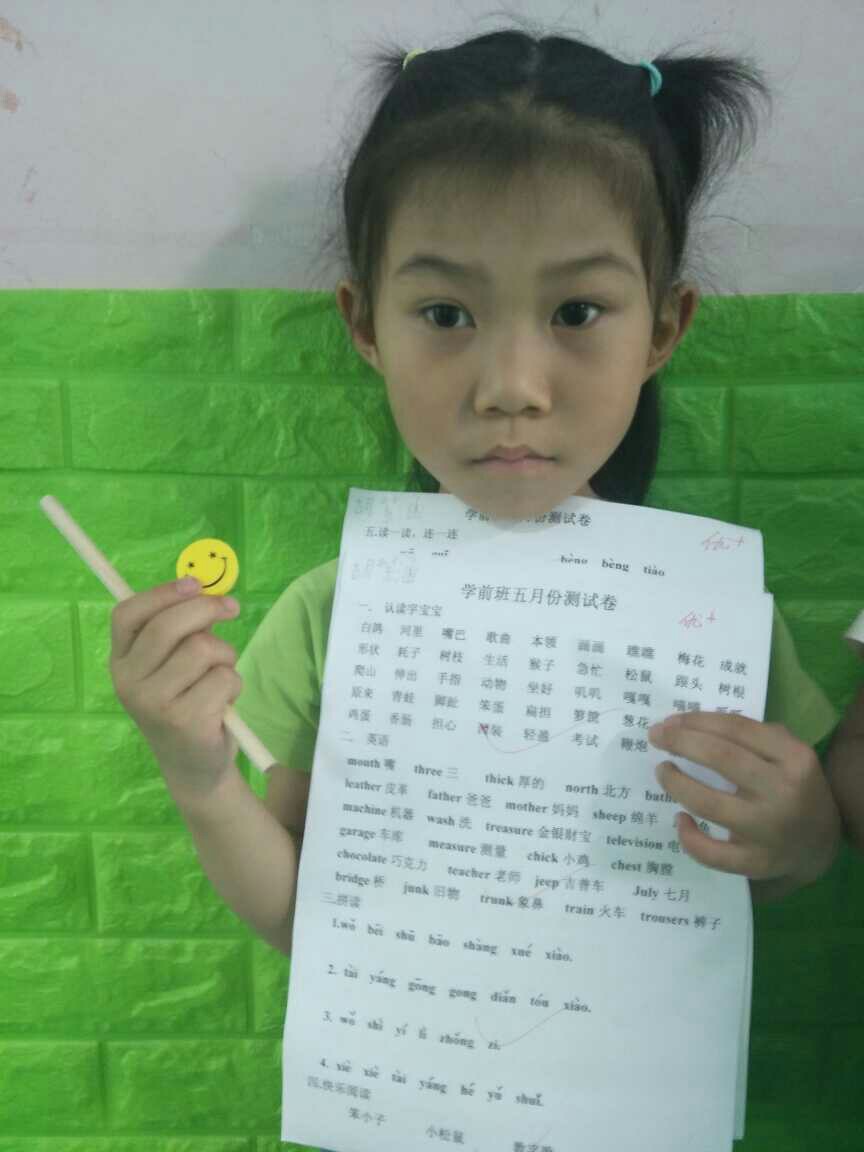 五.读一读，连一连
bèng bèng tiào
优+
学前班五月份测试卷
优+
一、 认读字宝宝
白鸽 河里 嘴巴 歌曲 本领 画画 瞧瞧 梅花 成就
形状 耗子 树枝 生活 猴子 急忙 松鼠 跟头 树根
爬山 伸出 手指 动物 坐好 叽叽 嘎嘎
原来 青蛙 脚趾 笨蛋 扁担 箩筐 葱花
鸡蛋 香肠 担心 轻盈 考试 鞭炮
二、 英语
mouth 嘴 three 三 thick 厚的 north 北方
leather 皮革 father 爸爸 mother 妈妈 sheep 绵羊
machine 机器 wash 洗 treasure 金银财宝 television
garage 车库 measure 测量 chick 小鸡 chest 胸膛
chocolate 巧克力 teacher 老师 jeep 吉普车 July 七月
bridge 桥 junk 旧物 trunk 象鼻 train 火车 trousers 裤子
三.拼读
1.wǒ bēi shū bāo shàng xué xiào.
2. tài yáng gōng gong diǎn tóu xiào.
3. wǒ shì yí lì zhǒng zi.
4. xiè xiè tài yáng hé yǔ shuǐ.
四.快乐阅读
笨小子 小松鼠